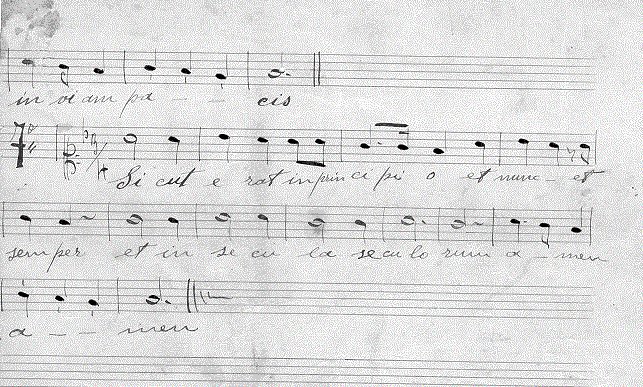 in viam pa - - cis
7ª
3/4
Si cut e rat in prin ci pi o et nunc - et
sem per et in se cu la se cu lo rum a - men
a - - men